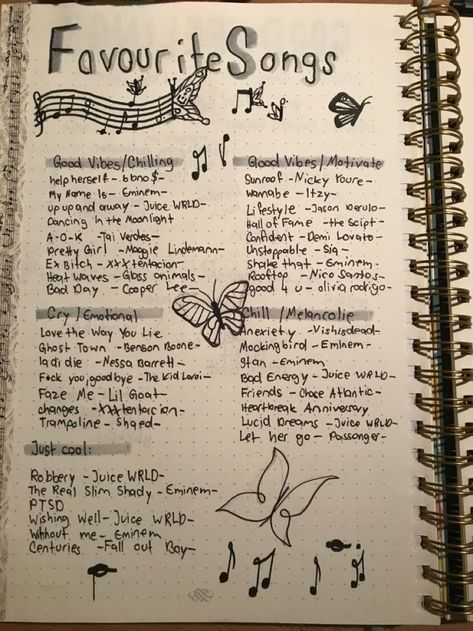 Favourite Songs
Good Vibes/Chilling
help herself - bbno $-
My Name Is - Eminem-
up up and away - Juice WRLD-
Dancing In the Moonlight
A-O-K - Tai Verdes-
Pretty Girl - Maggie Lindemann-
Ex Bitch - XXXtentacion-
Heat Waves - Glass animals-
Bad Day - Cooper Lee-
Good Vibes/Motivate
Sunroof - Nicky Youre-
Wannabe - Itzy-
Lifestyle - Jason Derulo-
Hall of Fame - the Script-
Confident - Demi Lovato-
Unstoppable - Sia-
Shake that - Eminem-
Rooftop - Nico Santos-
good 4 u - olivia rodrigo-
Cry/Emotional
Love the Way You Lie
Ghost Town - Benson Boone-
la di die - Nessa Barrett-
F*ck you, goodbye - The Kid Laroi-
Faze Me - Lil Goat-
changes - XXXtentacion-
Trampoline - Shaed-
Chill/Melancolie
Anexriety - Vishisdead-
Mockingbird - Eminem-
Stan - Eminem-
Bad Energy - Juice WRLD-
Friends - Chace Atlantic-
Heartbreak Anniversary
Lucid Dreams - Juice WRLD-
Let her go - Passanger-
Just cool:
Robbery - Juice WRLD-
The Real Slim Shady - Eminem-
PTSD
Wishing Well - Juice WRLD-
Without me - Eminem
Centuries - Fall out Boy-